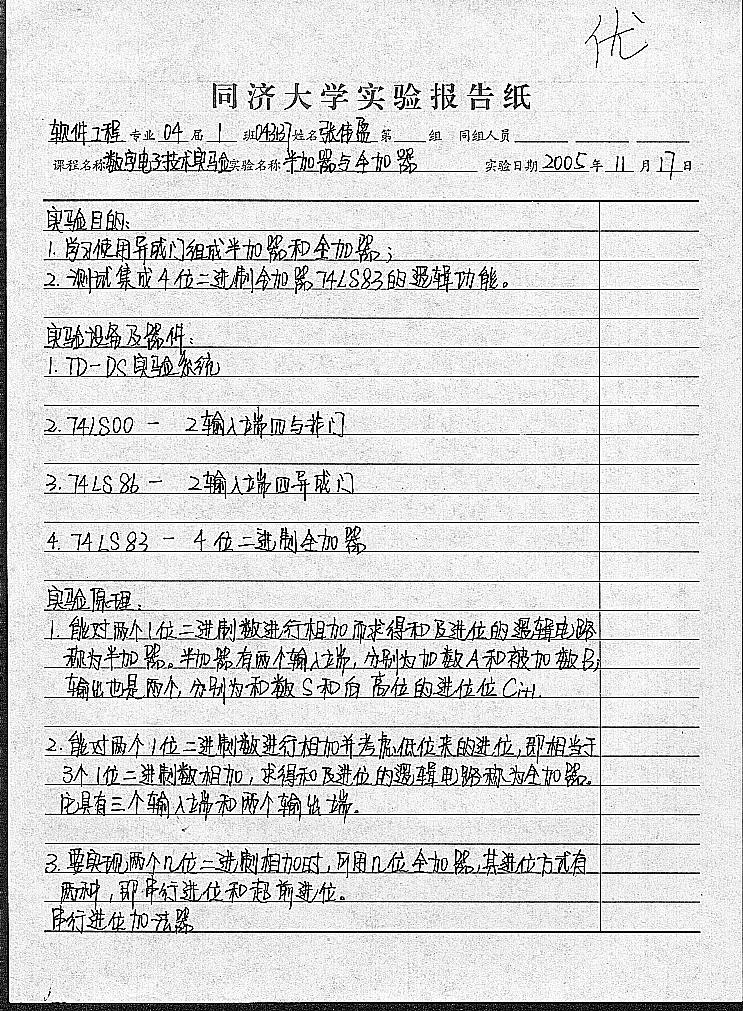 优
同济大学实验报告纸
软件工程 专业 04 届 1 班 043137 姓名 张伟 第 组 同组人员
课程名称 数字电子技术实验 实验名称 半加器与全加器 实验日期 2005 年 11 月 17 日
实验目的:
1. 学习使用异或门组成半加器和全加器;
2. 测试集成4位二进制全加器74LS83的逻辑功能。
实验设备及器件:
1. TD-DS实验系统
2. 74LS00 - 2输入端四与非门
3. 74LS86 - 2输入端四异或门
4. 74LS83 - 4位二进制全加器
实验原理:
1. 能对两个1位二进制数进行相加而求得和及进位的逻辑电路
称为半加器。半加器有两个输入端,分别为加数A和被加数B;
输出也是两个,分别为和数S和向高位的进位位Ci+1.
2. 能对两个1位二进制数进行相加并考虑低位来的进位,即相当于
3个1位二进制数相加,求得和及进位的逻辑电路称为全加器。
它具有三个输入端和两个输出端。
3. 要实现两个n位二进制相加时,可用n位全加器,其进位方式有
两种,即串行进位和超前进位。
串行进位加法器